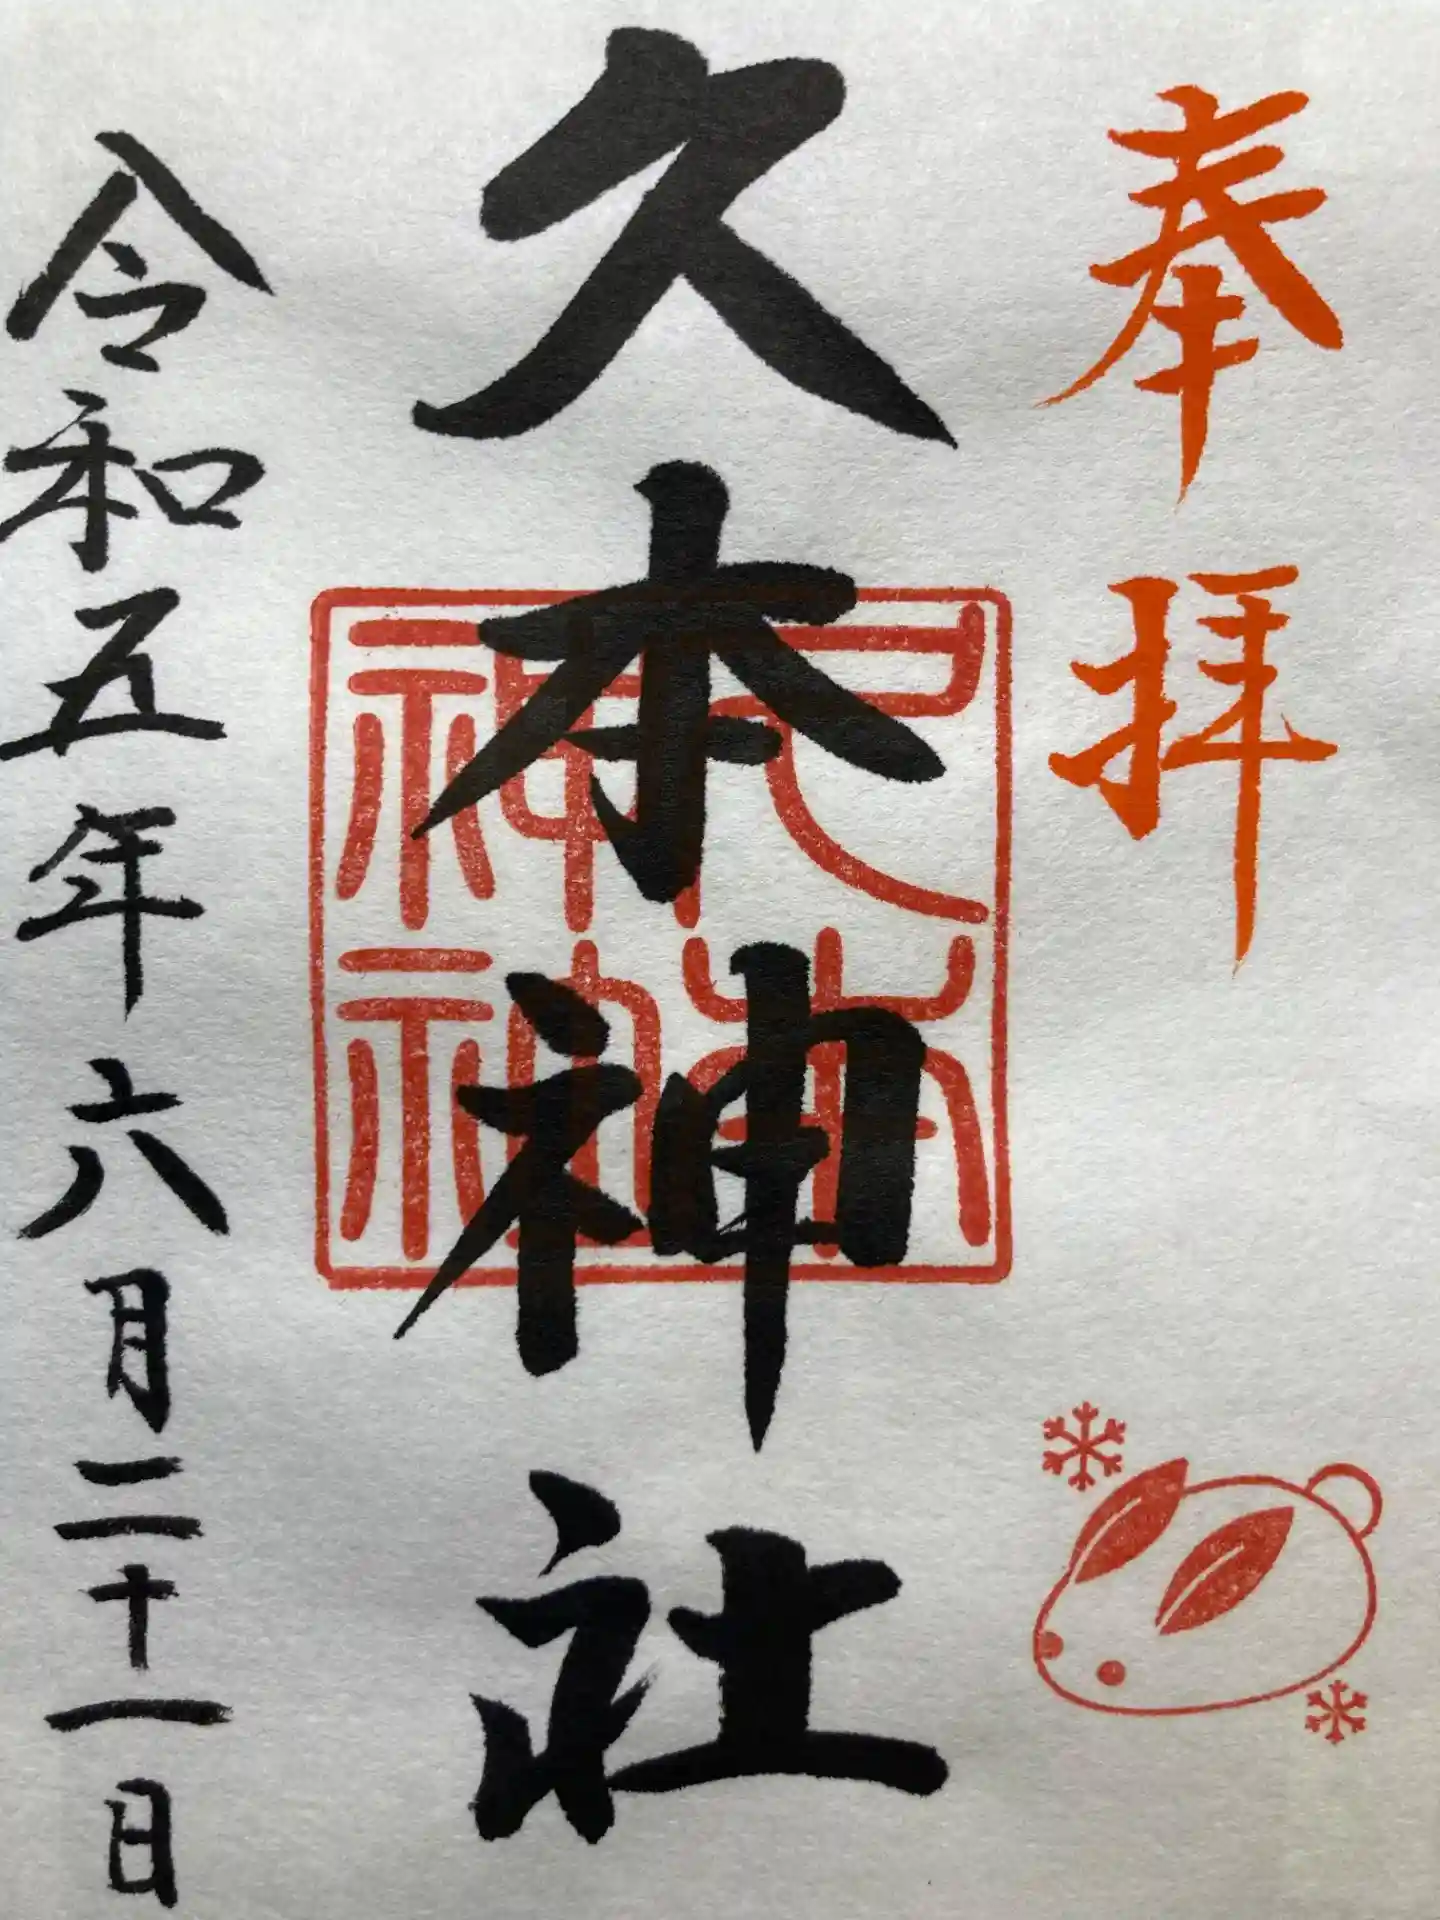 奉拝
久本神社
久本神神
令和五年六月二十一日